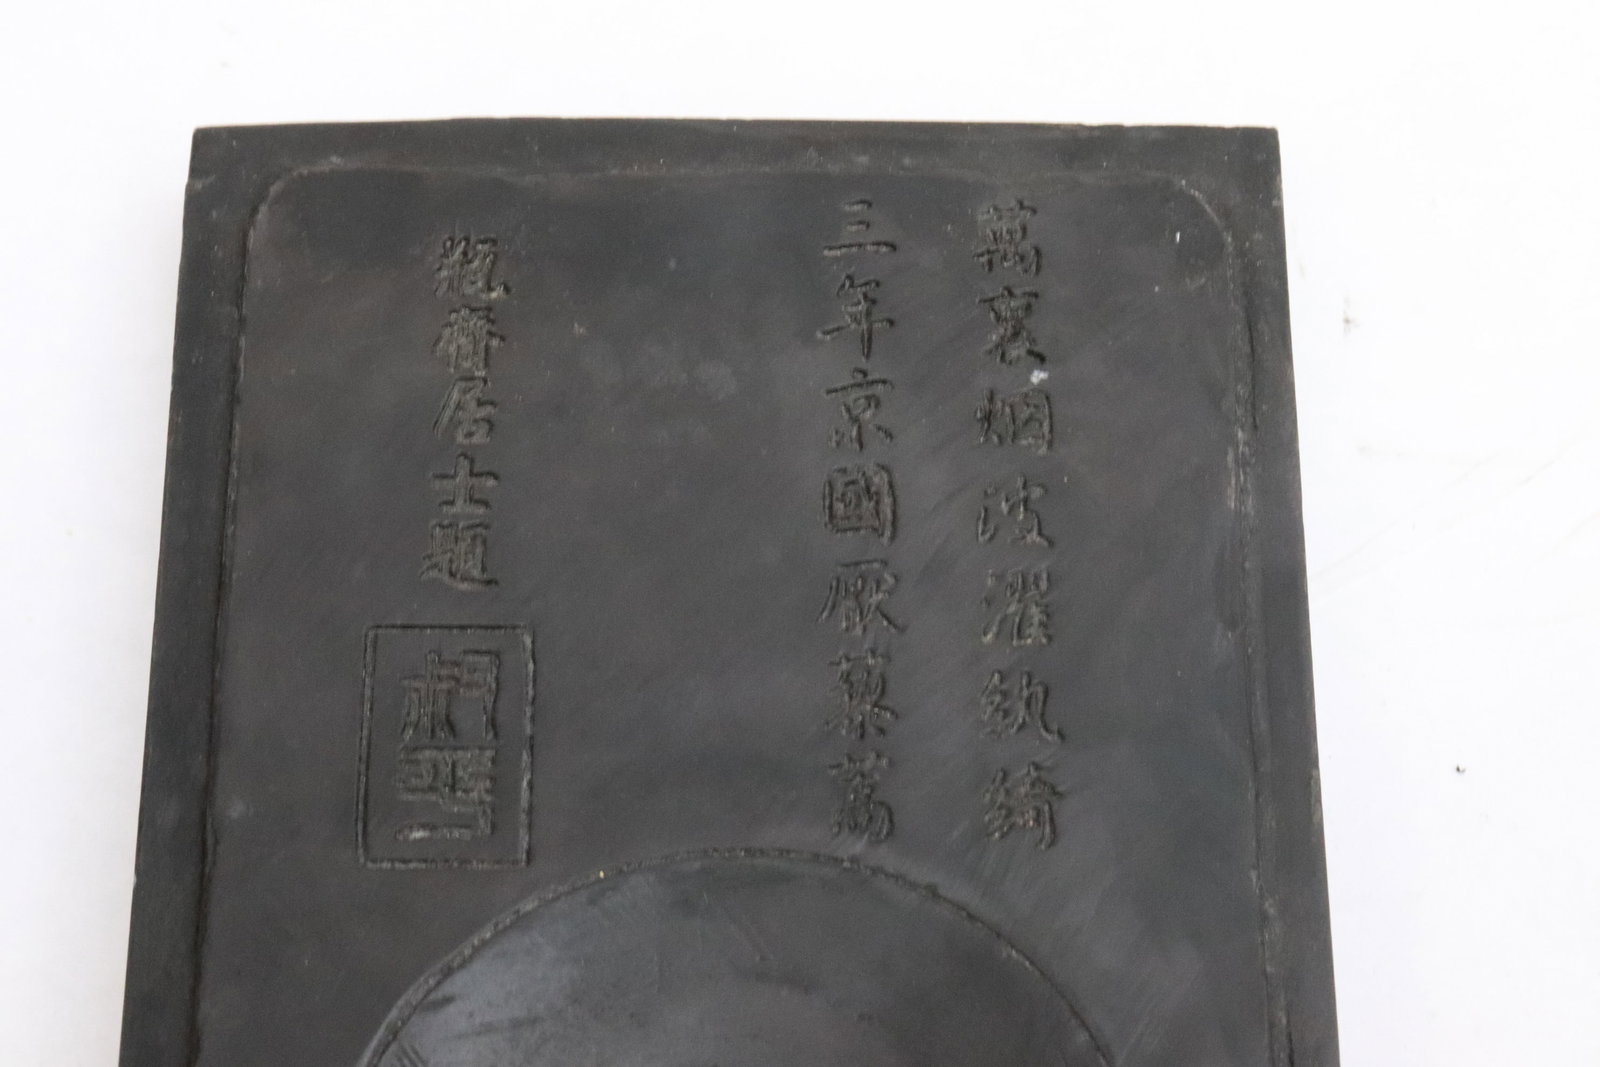 萬裏烟波濯紈綺
三年京國厭藜蒿
瓶齋居士題